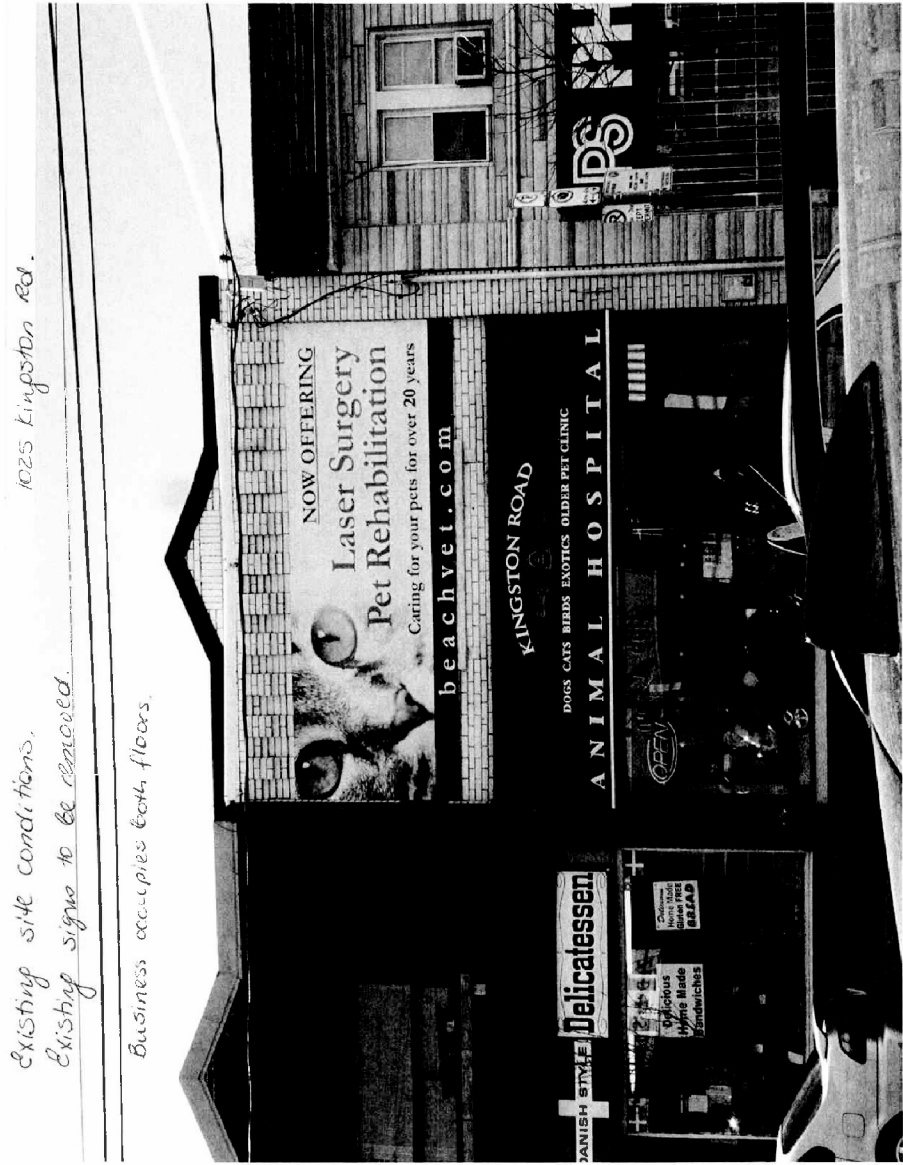 Existing site conditions.
1025 Kingston Rd.
Existing signs to be removed.
Business occupies both floors.
NOW OFFERING
Laser Surgery
Pet Rehabilitation
Caring for your pets for over 20 years
beachvet.com
KINGSTON ROAD
DOGS CATS BIRDS EXOTICS OLDER PET CLINIC
ANIMAL HOSPITAL
OPEN
DANISH STYLE Delicatessen
Delicious
Home Made
Sandwiches
Delicious
Home Made
Gluten FREE
BREAD
DS